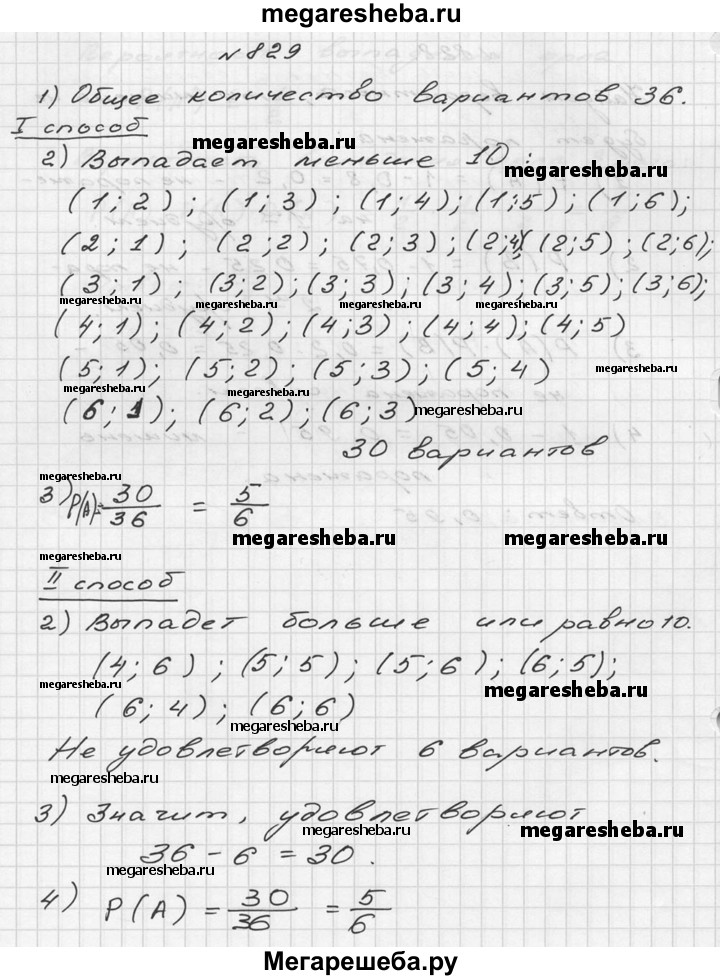 megaresheba.ru
№829
1) Общее количество вариантов 36.
I способ
megaresheba.ru
2) Выпадает меньше 10:
megaresheba.ru
(1; 2); (1; 3); (1; 4); (1;5); (1; 6);
(2; 1); (2; 2); (2; 3); (2;4)(2; 5); (2;6);
(3; 1); (3;2); (3; 3); (3; 4); (3; 5); (3;6);
megaresheba.ru megaresheba.ru megaresheba.ru megaresheba.ru megaresheba.ru
(4; 1); (4; 2); (4;3); (4; 4); (4; 5)
(5; 1); (5; 2); (5; 3); (5; 4) megaresheba.ru
megaresheba.ru
(6; 1); (6; 2); (6; 3) megaresheba.ru
30 вариантов
megaresheba.ru
3) P(A)= 30/36 = 5/6
megaresheba.ru megaresheba.ru
megaresheba.ru
II способ
2) Выпадет больше или равно 10.
(4; 6); (5; 5); (5; 6); (6; 5);
megaresheba.ru megaresheba.ru
(6; 4); (6; 6)
megaresheba.ru
Не удовлетворяют 6 вариантов.
megaresheba.ru
3) Значит, удовлетворяют
megaresheba.ru megaresheba.ru
36 - 6 = 30.
megaresheba.ru
4) P(A) = 30/36 = 5/6
Мегарешеба.ру